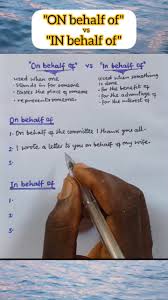 "ON behalf of"
vs
"IN behalf of"
"On behalf of" vs "In behalf of"
used when one
- Stands in for someone
- takes the place of someone
- represents someone
used when something
is done
- for the benefit of
- for the advantage of
- for the interest of
On behalf of
1. On behalf of the committee I thank you all.
2. I wrote a letter to you on behalf of my wife.
3.
In behalf of
1.
2.
3.